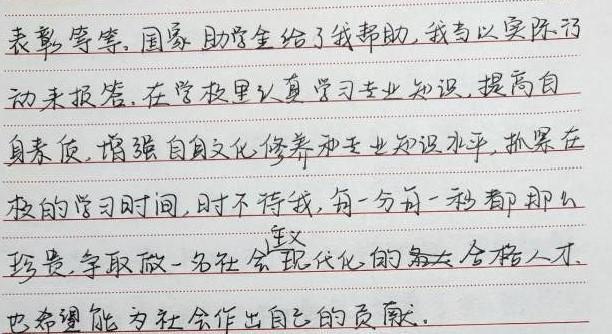 表彰等等。国家助学金给了我帮助,我当以实际行
动来报答。在学校里认真学习专业知识,提高自
身素质,增强自身文化修养和专业知识水平,抓紧在
校的学习时间,时不待我,每一分每一秒都那么
珍贵,争取做一名社会主义现代化的合格人才。
也希望能为社会作出自己的贡献。